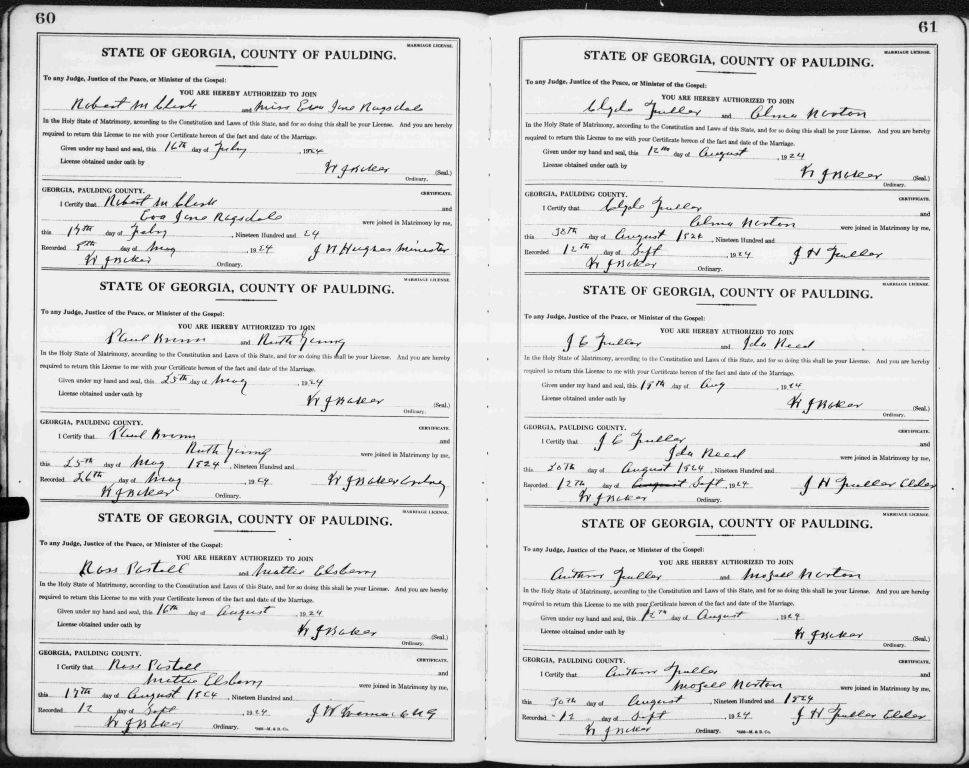 60
MARRIAGE LICENSE.
STATE OF GEORGIA, COUNTY OF PAULDING.
To any Judge, Justice of the Peace, or Minister of the Gospel:
YOU ARE HEREBY AUTHORIZED TO JOIN
Robert M Clerk and Miss Eva Jane Ragsdale
In the Holy State of Matrimony, according to the Constitution and Laws of this State, and for so doing this shall be your License. And you are hereby
required to return this License to me with your Certificate hereon of the fact and date of the Marriage.
Given under my hand and seal, this 16th day of Feby , 1924
License obtained under oath by
W J Baker (Seal.)
Ordinary.
GEORGIA, PAULDING COUNTY. CERTIFICATE.
I Certify that Robert M Clerk and
Eva Jane Ragsdale were joined in Matrimony by me,
this 17th day of Feby , Nineteen Hundred and 24
Recorded 8th day of May , 1924 J W Hughes Minister
W J Baker Ordinary.
MARRIAGE LICENSE.
STATE OF GEORGIA, COUNTY OF PAULDING.
To any Judge, Justice of the Peace, or Minister of the Gospel:
YOU ARE HEREBY AUTHORIZED TO JOIN
Paul and Ruth
In the Holy State of Matrimony, according to the Constitution and Laws of this State, and for so doing this shall be your License. And you are hereby
required to return this License to me with your Certificate hereon of the fact and date of the Marriage.
Given under my hand and seal, this 25th day of May , 1924
License obtained under oath by
W J Baker (Seal.)
Ordinary.
GEORGIA, PAULDING COUNTY. CERTIFICATE.
I Certify that Paul and
Ruth were joined in Matrimony by me,
this 25th day of May 1924 , Nineteen Hundred and
Recorded 26th day of May , 1924 W J Baker Ordney
W J Baker Ordinary.
MARRIAGE LICENSE.
STATE OF GEORGIA, COUNTY OF PAULDING.
To any Judge, Justice of the Peace, or Minister of the Gospel:
YOU ARE HEREBY AUTHORIZED TO JOIN
Ross Postell and Mattie Elsberry
In the Holy State of Matrimony, according to the Constitution and Laws of this State, and for so doing this shall be your License. And you are hereby
required to return this License to me with your Certificate hereon of the fact and date of the Marriage.
Given under my hand and seal, this 16th day of August , 1924
License obtained under oath by
W J Baker (Seal.)
Ordinary.
GEORGIA, PAULDING COUNTY. CERTIFICATE.
I Certify that Ross Postell and
Mattie Elsberry were joined in Matrimony by me,
this 17th day of August 1924 , Nineteen Hundred and
Recorded 12 day of Sept , 1924 J W
W J Baker Ordinary.
61
MARRIAGE LICENSE.
STATE OF GEORGIA, COUNTY OF PAULDING.
To any Judge, Justice of the Peace, or Minister of the Gospel:
YOU ARE HEREBY AUTHORIZED TO JOIN
Clyde Fuller and Elma Norton
In the Holy State of Matrimony, according to the Constitution and Laws of this State, and for so doing this shall be your License. And you are hereby
required to return this License to me with your Certificate hereon of the fact and date of the Marriage.
Given under my hand and seal, this 12th day of August , 1924
License obtained under oath by
W J Baker (Seal.)
Ordinary.
GEORGIA, PAULDING COUNTY. CERTIFICATE.
I Certify that Clyde Fuller and
Elma Norton were joined in Matrimony by me,
this 30th day of August 1924 , Nineteen Hundred and
Recorded 12th day of Sept , 1924 J H Fuller
W J Baker Ordinary.
MARRIAGE LICENSE.
STATE OF GEORGIA, COUNTY OF PAULDING.
To any Judge, Justice of the Peace, or Minister of the Gospel:
YOU ARE HEREBY AUTHORIZED TO JOIN
J C Fuller and Ida Reed
In the Holy State of Matrimony, according to the Constitution and Laws of this State, and for so doing this shall be your License. And you are hereby
required to return this License to me with your Certificate hereon of the fact and date of the Marriage.
Given under my hand and seal, this 19th day of Aug , 1924
License obtained under oath by
W J Baker (Seal.)
Ordinary.
GEORGIA, PAULDING COUNTY. CERTIFICATE.
I Certify that J C Fuller and
Ida Reed were joined in Matrimony by me,
this 20th day of August 1924 , Nineteen Hundred and
Recorded 12th day of August Sept , 1924 J H Fuller Elder
W J Baker Ordinary.
MARRIAGE LICENSE.
STATE OF GEORGIA, COUNTY OF PAULDING.
To any Judge, Justice of the Peace, or Minister of the Gospel:
YOU ARE HEREBY AUTHORIZED TO JOIN
Authur Fuller and Mozell Norton
In the Holy State of Matrimony, according to the Constitution and Laws of this State, and for so doing this shall be your License. And you are hereby
required to return this License to me with your Certificate hereon of the fact and date of the Marriage.
Given under my hand and seal, this 12th day of August , 1924
License obtained under oath by
W J Baker (Seal.)
Ordinary.
GEORGIA, PAULDING COUNTY. CERTIFICATE.
I Certify that Authur Fuller and
Mozell Norton were joined in Matrimony by me,
this 30th day of August , Nineteen Hundred and 1924
Recorded 12 day of Sept , 1924 J H Fuller Elder
W J Baker Ordinary.